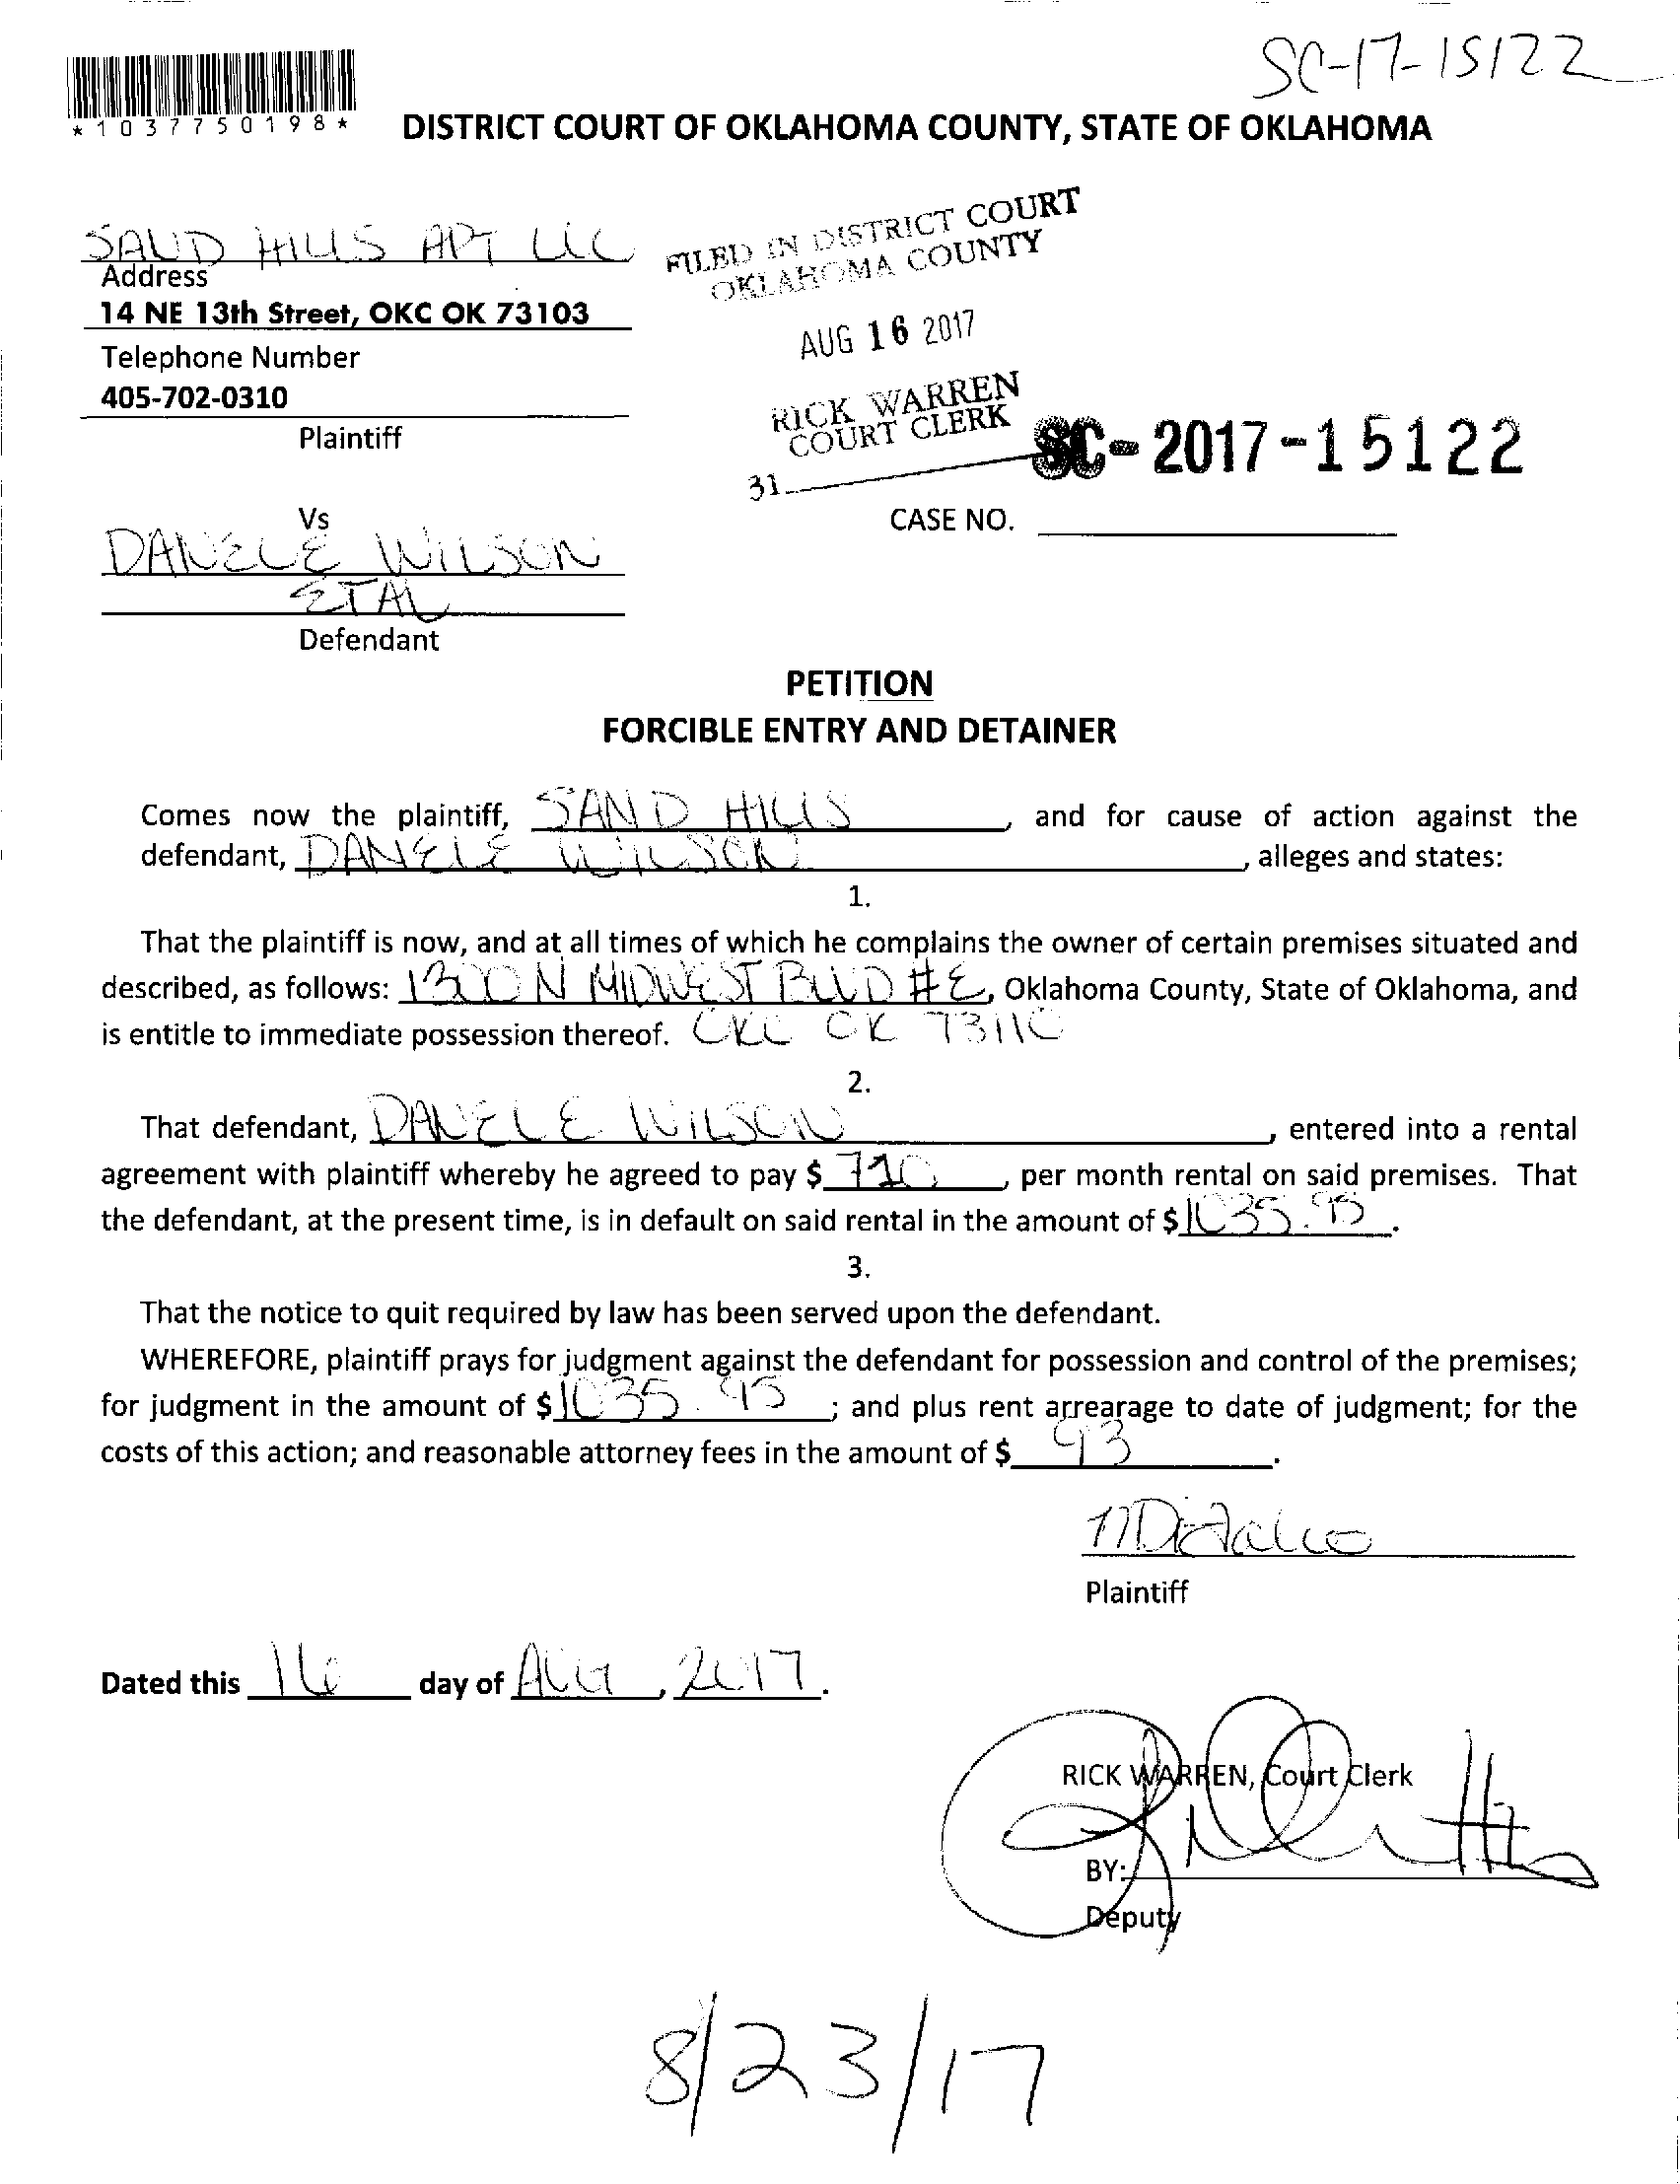 SC-17-15122
*1037750198*
DISTRICT COURT OF OKLAHOMA COUNTY, STATE OF OKLAHOMA
SAND HILLS APT LLC
FILED IN DISTRICT COURT
OKLAHOMA COUNTY
Address
14 NE 13th Street, OKC OK 73103
AUG 16 2017
Telephone Number
405-702-0310
RICK WARREN
COURT CLERK
Plaintiff
SC-2017-15122
31
Vs
CASE NO.
DANELE WILSON
ETAL
Defendant
PETITION
FORCIBLE ENTRY AND DETAINER
Comes now the plaintiff, SAND HILLS, and for cause of action against the
defendant, DANELE WILSON, alleges and states:
1.
That the plaintiff is now, and at all times of which he complains the owner of certain premises situated and
described, as follows: 1300 N MIDWEST BLVD #E, Oklahoma County, State of Oklahoma, and
is entitle to immediate possession thereof. OKC OK 73110
2.
That defendant, DANELE WILSON, entered into a rental
agreement with plaintiff whereby he agreed to pay $ 710, per month rental on said premises. That
the defendant, at the present time, is in default on said rental in the amount of $ 1035.95.
3.
That the notice to quit required by law has been served upon the defendant.
WHEREFORE, plaintiff prays for judgment against the defendant for possession and control of the premises;
for judgment in the amount of $ 1035.95; and plus rent arrearage to date of judgment; for the
costs of this action; and reasonable attorney fees in the amount of $ 93.
Plaintiff
Dated this 16 day of AUG, 2017.
RICK WARREN, Court Clerk
BY:
Deputy
8/23/17